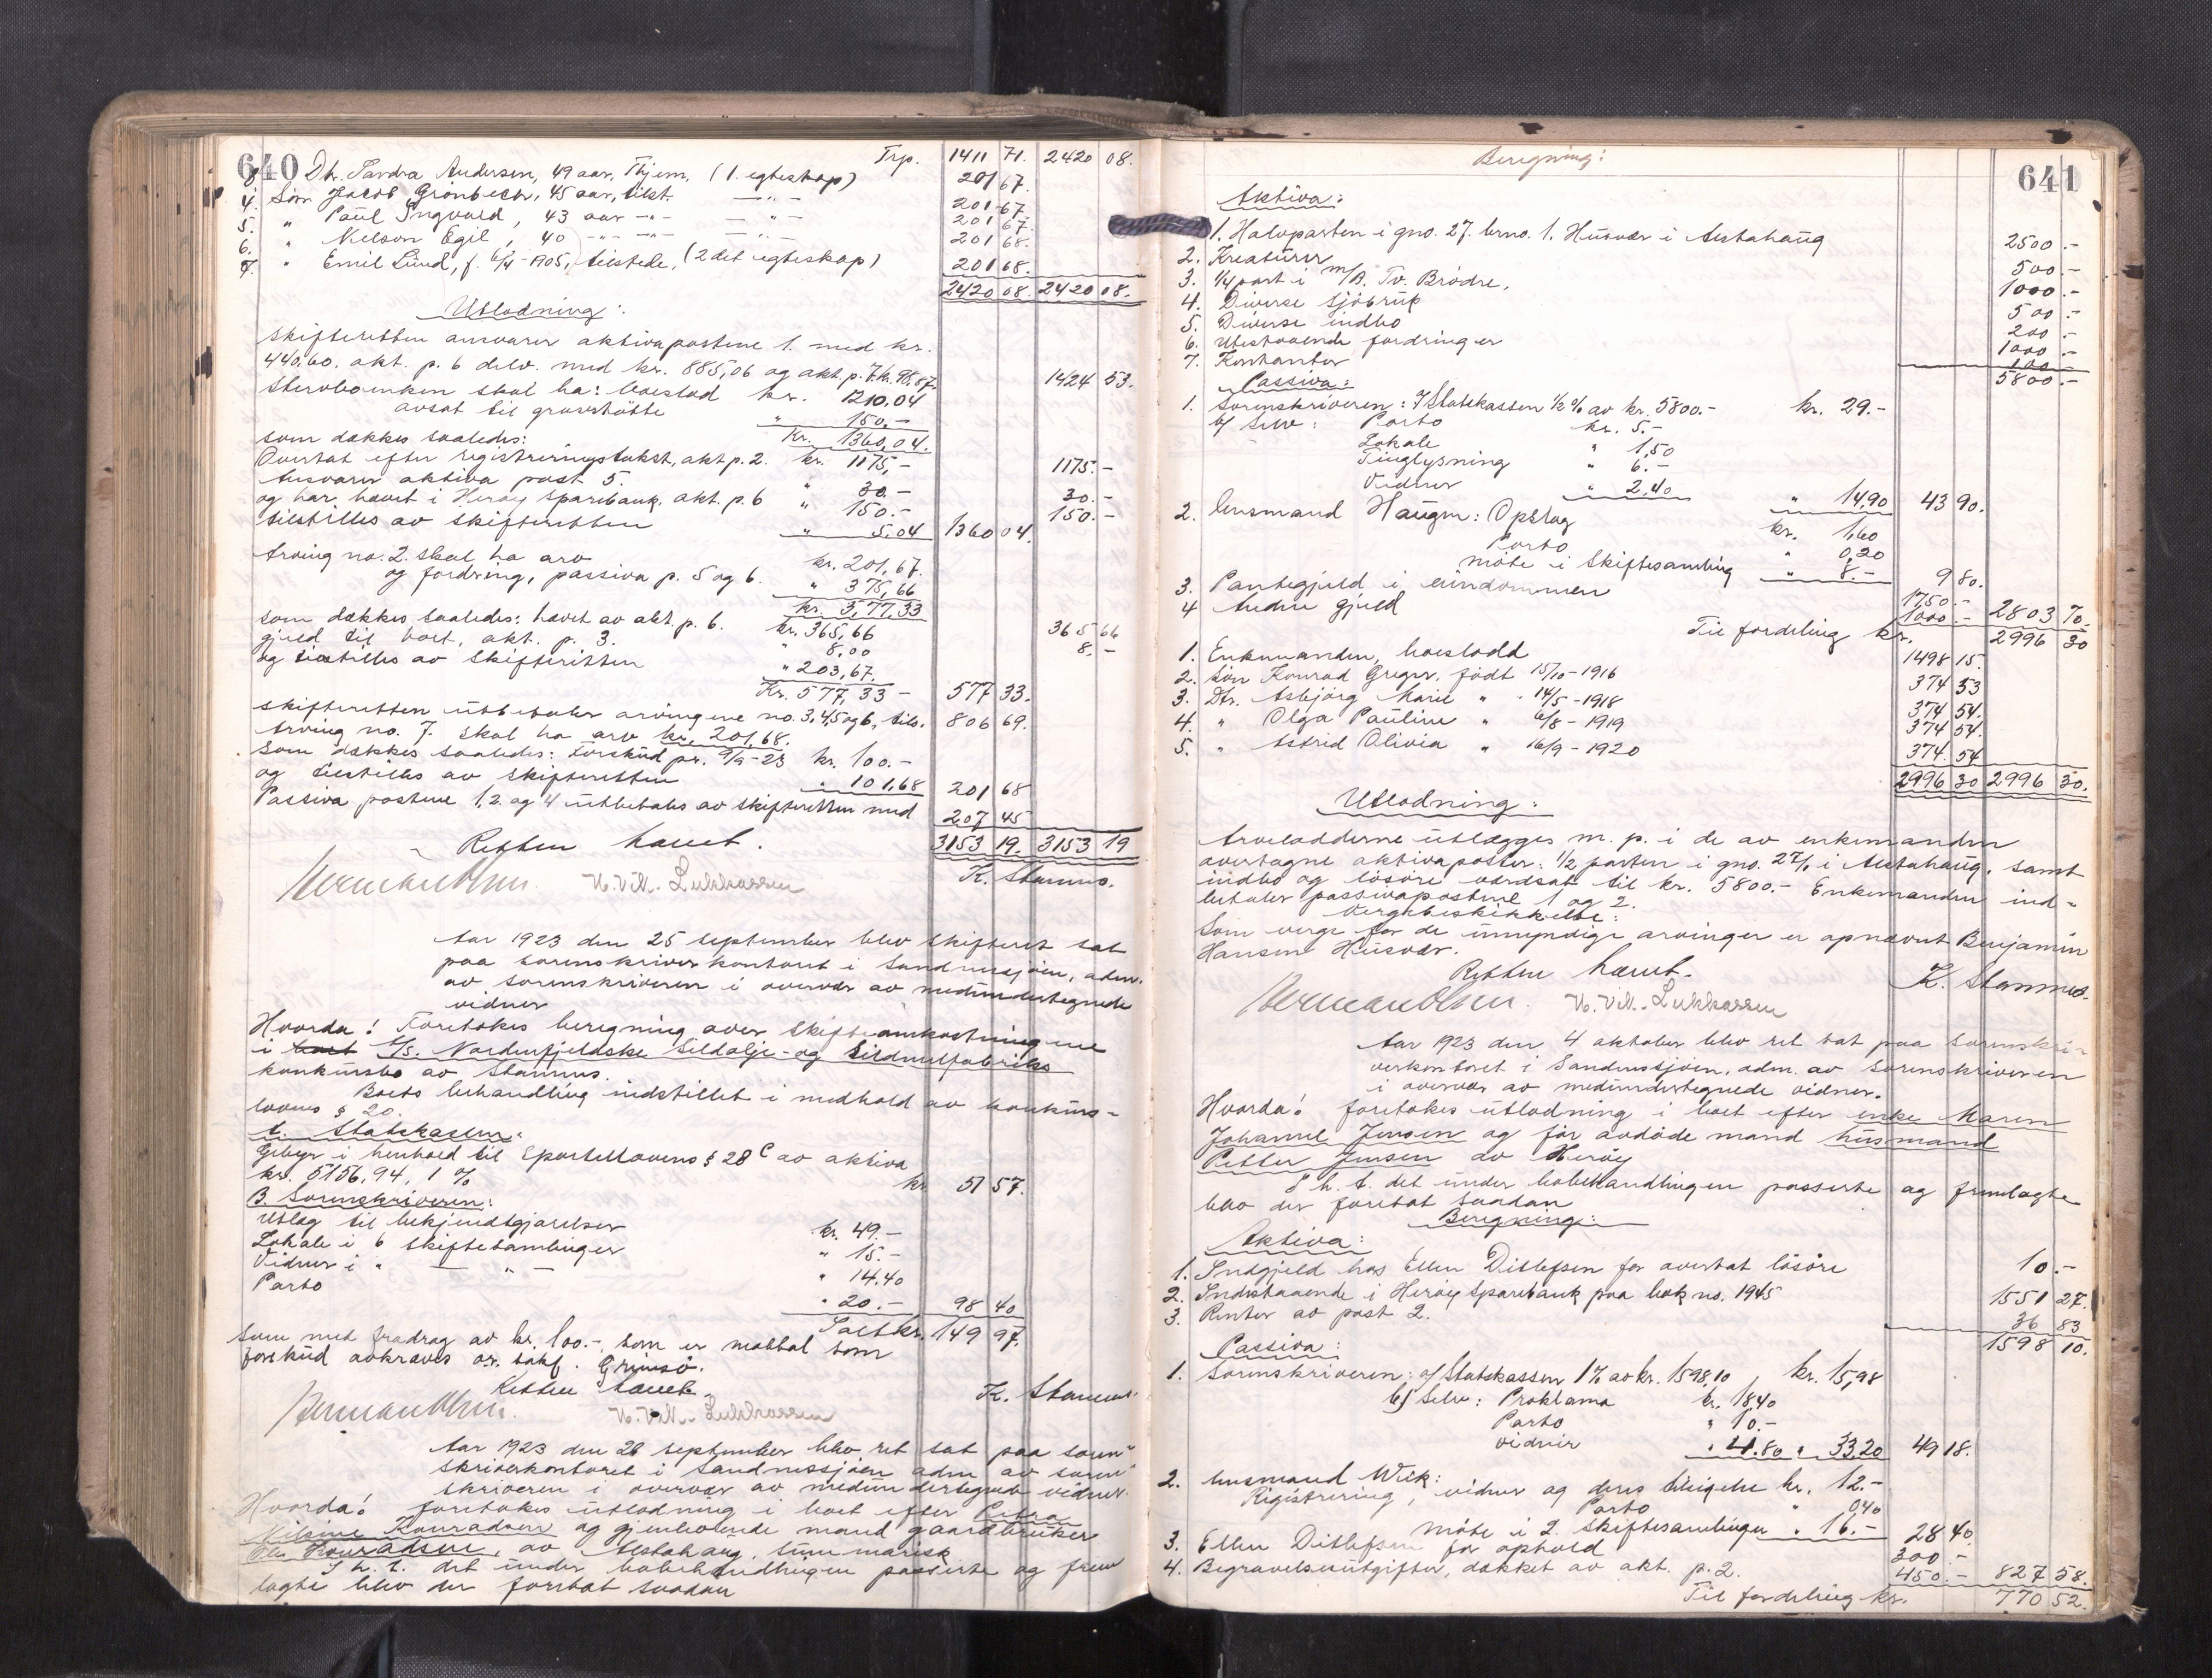 640
Trp. 1411 71. 2420 08.
3. Dtr. Sandra Andersen, 49 aar, Thjem, (1. egteskap) 201 67.
4. Søn Jacob Grönbech, 45 aar, tilst. — " — 201 67
5. " Paul Ingvald, 43 aar —"— — " — 201 67.
6. " Nelson Egil, 40 —"— —"— — " — 201 68.
7. " Emil Lund, f. 6/4-1905, tilstede, (2det egteskap) 201 68.
2420 08. 2420 08.
Utlodning:
Skifteretten ansvarer aktivapostene 1. med kr.
440,60. akt. p. 6 delv. med kr. 885,06 og akt. p. 7. kr. 98,87. 1424 53.
Stervboenken skal ha: boeslod kr. 1210.04
avsat til gravstötte " 150.-
Kr. 1360,04.
som dækkes saaledes:
Overtat efter registreringstakst, akt. p. 2. kr. 1175,- 1175.-
Ansvarer aktiva post 5. " 30.- 30.-
og har hævet i Heröy Sparebank, akt. p. 6 " 150.- 150.-
tilstilles av skifteretten " 5.04 1360 04.
Arving no. 2. skal ha arv kr. 201,67.
og fordring, passiva p. 5 og 6. " 375,66
kr. 5,77,33
som dækkes saaledes: hævet av akt. p. 6. kr. 365,66 365 66
gjæld til boet, akt. p. 3. " 8,00 8.-
og tilstilles av skifteretten " 203,67.
Kr. 577,33 - 577 33.
Skifteretten utbetaler arvingene no. 3, 4, 5 og 6, tils. 806 69.
Arving no. 7. skal ha arv kr. 201,68.
som dækkes saaledes: Forskud pr. 9/9-23 kr. 100.-
og tilstilles av skifteretten " 101,68 201 68
Passiva postene 1, 2. og 4 utbetales av skifteretten med 207 45
3153 19. 3153 19
Retten hævet.
K. Stamnes.
Herman Olsen. N. Vill. Lukkassen
Aar 1923 den 25 september blev skifteret sat
paa sorenskriverkontoret i Sandnessjöen, adm.
av sorenskriveren i overvær av medundertegnede
vidner
Hvorda! Foretokes beregning over skifteomkostningene
i boet A/S. Nordenfjeldske Sildolje- og Sildmelfabriks
konkursbo av Stamnes.
Boets behandling indstillet i medhold av konkurs-
lovens § 20.
A. Statskassen:
Gebyr i henhold til Sportellovens § 28 C av aktiva
kr. 5156,94, 1 % kr. 51 57.
B. Sorenskriveren:
Utlæg til bekjendtgjørelser kr. 49.-
Lokale i 6 skiftesamlinger " 15.-
Vidner i " — " — " 14.40
Porto " 20.- 98 40
Salt kr. 149 97.
Som med fradrag av kr. 100.-, som er mottat som
forskud avkræves or. sakf. Grimsö.
Retten hævet.
K. Stamnes
Herman Olsen. N. Vill. Lukkassen
Aar 1923 den 26 september blev ret sat paa soren"
skriverkontoret i Sandnessjöen adm av soren"
skriveren i overvær av medundertegnede vidner.
Hvorda! foretokes utlodning i boet efter Petra
Nilsine Konradsen og gjenlevende mand gaardbruker
Ole Konradsen, av Alstahaug, summarisk
I h. t. det under bobehandlingen passerte og frem
lagte blev der foretat saadan
641
Beregning:
Aktiva:
1. Halvparten i gno. 27. brno. 1. Husvær i Alstahaug 2500.-
2. Kreaturer 500.-
3. 1/4 part i M/B. To. Brödre, 1000.-
4. Diverse sjöbruk 500.-
5. Diverse indbo 200.-
6. Utestaaende fordringer 1000.-
7. Kontanter 100.-
5800.-
Passiva:
1. Sorenskriveren: a/ Statskassen 1/2 % av kr. 5800.- kr. 29.-
b/ Selv: Porto kr. 5.-
Lokale " 1,50
Tinglysning " 6.-
Vidner " 2,40 " 14,90 43 90.
2. Lensmand Haugen: Opslag kr. 1,60
Porto " 0,20
møte i Skiftesamling " 8.- 9 80.
3. Pantegjæld i eiendommen 1750.-
4 Anden gjæld 1000.- 2803 70.
Til fordeling kr. 2996 30
1. Enkemanden, boeslodd 1498 15.
2. Søn Konrad Greger, födt 15/10-1916 374 53
3. Dtr. Asbjörg Marie " 14/5-1918 374 54.
4. " Olga Pauline " 6/8-1919 374 54.
5. " Astrid Olivia " 16/9-1920 374 54
2996 30 2996 30.
Utlodning:
Arvelodderne utlægges m. p. i de av enkemanden
overtagne aktivaposter: 1/2 parten i gno. 27/1 i Alstahaug, samt
indbo og lösöre værdsat til kr. 5800.- Enkemanden ind-
betaler passivapostene 1 og 2.
Vergebeskikkelse:
Som verge for de umyndige arvinger er opnævnt Benjamin
Hansen Husvær.
Retten hævet.
K. Stamnes.
Herman Olsen. N. Vill. Lukkassen
Aar 1923 den 4 oktober blev ret sat paa Sorenskri-
verkontoret i Sandnessjöen, adm. av Sorenskriveren
i overvær av medundertegnede vidner.
Hvorda! foretokes utlodning i boet efter enke Maren
Johanne Jensen og för avdöde mand husmand
Petter Jensen av Heröy
I h. t. det under bobehandlingen passerte og fremlagte
blev der foretat saadan
Beregning:
Aktiva:
1. Indgjæld hos Ellen Ditlefsen for overtat lösöre 10.-
2. Indestaaende i Heröy Sparebank paa bok no. 1945 1551 27.
3. Renter av post 2. 36 83
1598 10.
Passiva:
1. Sorenskriveren: a/ Statskassen 1% av kr. 1598,10 kr. 15,98
b/ Selv: Proklama kr. 18,40
Porto " 10.-
vidner " 4.80 " 33,20 49 18.
2. Lensmand Wiik:
Registrering, vidner og deres tilsigelse kr. 12.-
Porto " 0,40
møte i 2. skiftesamlinger " 16.- 28 40.
3. Ellen Ditlefsen for ophold 300.-
4. Begravelsesutgifter, dækket av akt. p. 2. 450.- 827 58.
Til fordeling kr. 770 52.